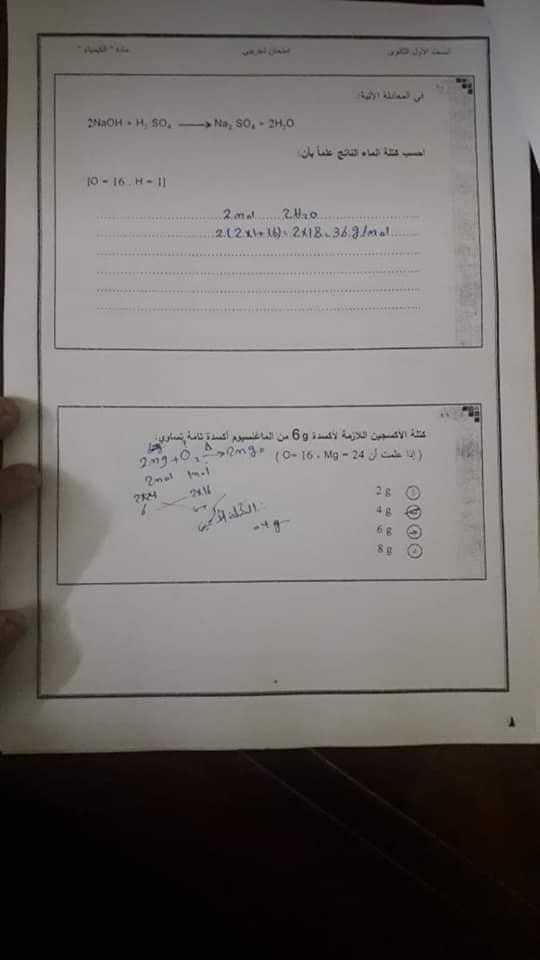 الصف الأول الثانوى امتحان تجريبى مادة " الكيمياء "
فى المعادلة الآتية:
2NaOH + H₂ SO₄ ⟶ Na₂ SO₄ + 2H₂O
احسب كتلة الماء الناتج علماً بأن:
[O = 16 , H = 1]
2 mol 2H₂O
2(2x1+16) = 2x18 = 36 g/mol
كتلة الأكسجين اللازمة لأكسدة 6 g من الماغنسيوم أكسدة تامة تساوى:
( إذا علمت أن O= 16 , Mg = 24 )
2mg + O₂ Δ→ 2mgo
2mol 1mol
2x24 2x16
6
= 4 g
2 g أ
4 g
6 g ج
8 g د
٨